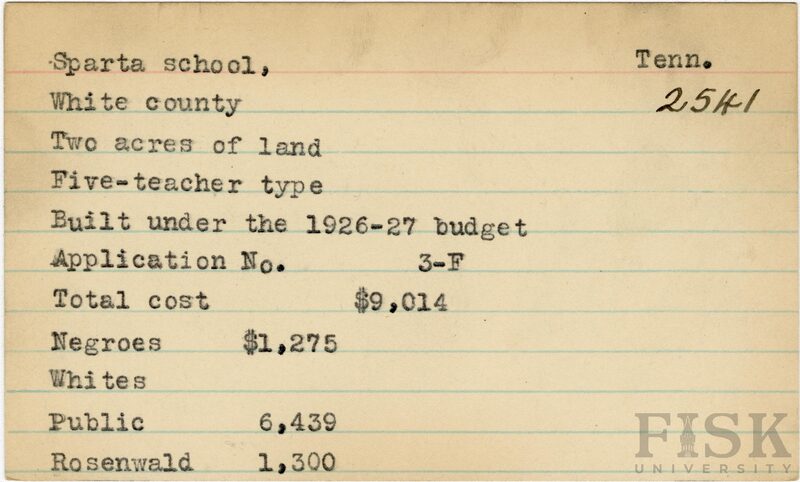 Sparta school, Tenn.
White county 2541
Two acres of land
Five-teacher type
Built under the 1926-27 budget
Application No. 3-F
Total cost $9,014
Negroes $1,275
Whites
Public 6,439
Rosenwald 1,300
FISK
UNIVERSITY